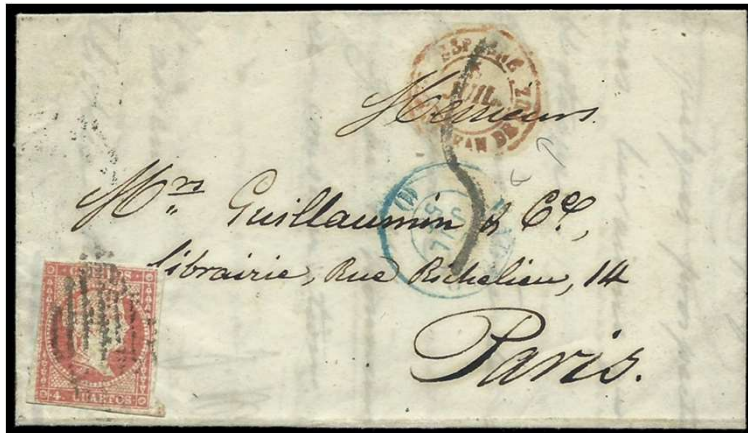 ESPAGNE
JUIL.
JEAN DE LUZ
Messieurs
Mrs Guillaumin & Cie,
librairie, Rue Richelieu, 14
Paris.
4 CUARTOS